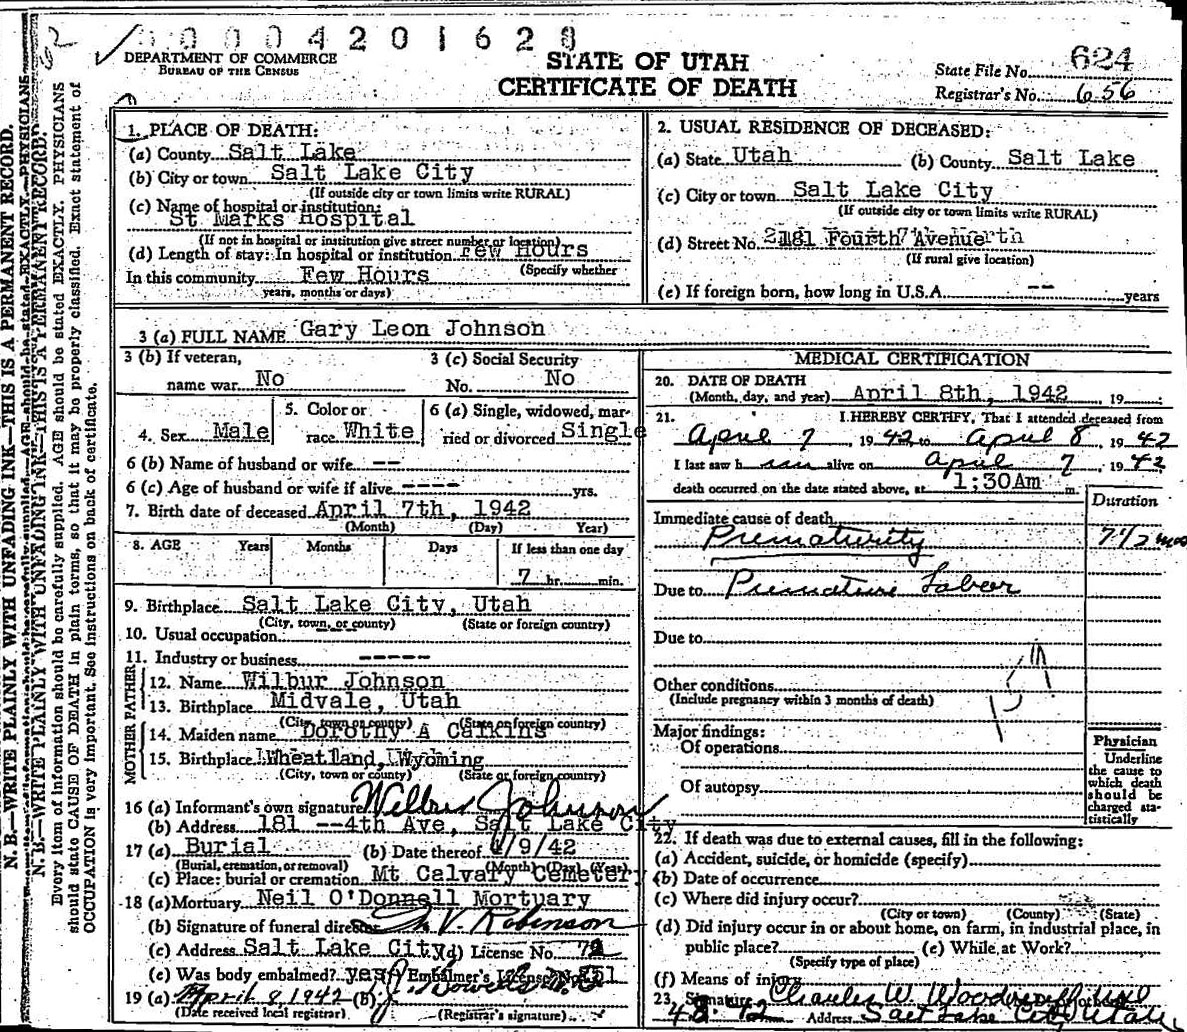 0004201620
DEPARTMENT OF COMMERCE
BUREAU OF THE CENSUS
STATE OF UTAH
CERTIFICATE OF DEATH
State File No. 624
Registrar's No. 656
N. B.—WRITE PLAINLY WITH UNFADING INK—THIS IS A PERMANENT RECORD.
N. B.—WRITE PLAINLY WITH UNFADING INK—THIS IS A PERMANENT RECORD.
Every item of information should be carefully supplied. AGE should be stated EXACTLY. PHYSICIANS
should state CAUSE OF DEATH in plain terms, so that it may be properly classified. Exact statement of
OCCUPATION is very important. See instructions on back of certificate.
1. PLACE OF DEATH:
(a) County Salt Lake
(b) City or town Salt Lake City
(If outside city or town limits write RURAL)
(c) Name of hospital or institution:
St Marks Hospital
(If not in hospital or institution give street number or location)
(d) Length of stay: In hospital or institution Few Hours
(Specify whether
In this community Few Hours
years, months or days)
2. USUAL RESIDENCE OF DECEASED:
(a) State Utah (b) County Salt Lake
(c) City or town Salt Lake City
(If outside city or town limits write RURAL)
(d) Street No. 181 Fourth Avenue
(If rural give location)
(e) If foreign born, how long in U.S.A. -- years
3 (a) FULL NAME Gary Leon Johnson
3 (b) If veteran, 3 (c) Social Security
name war No No. No
4. Sex Male 5. Color or race White 6 (a) Single, widowed, married or divorced Single
6 (b) Name of husband or wife --
6 (c) Age of husband or wife if alive ---- yrs.
7. Birth date of deceased April 7th, 1942
(Month) (Day) Year)
8. AGE Years Months Days If less than one day
7 hr. min.
9. Birthplace Salt Lake City, Utah
(City, town, or county) (State or foreign country)
10. Usual occupation
11. Industry or business -----
FATHER
12. Name Wilbur Johnson
13. Birthplace Midvale, Utah
(City, town or county) (State or foreign country)
MOTHER
14. Maiden name Dorothy A Calkins
15. Birthplace Wheatland, Wyoming
(City, town or county) (State or foreign country)
16 (a) Informant's own signature Wilbur Johnson
(b) Address 181 --4th Ave, Salt Lake City
17 (a) Burial (b) Date thereof 4/9/42
(Burial, cremation, or removal) (Month) (Day) (Year)
(c) Place: burial or cremation Mt Calvary Cemetery
18 (a) Mortuary Neil O'Donnell Mortuary
(b) Signature of funeral director V. Robinson
(c) Address Salt Lake City (d) License No.
(e) Was body embalmed? yes Embalmer's License No.
19 (a) April 8, 1942 (b)
(Date received local registrar) (Registrar's signature)
MEDICAL CERTIFICATION
20. DATE OF DEATH
(Month, day, and year) April 8th, 1942, 19
21. I HEREBY CERTIFY, That I attended deceased from
April 7, 1942 to April 8, 1942
I last saw h alive on April 7, 1942
death occurred on the date stated above, at 1:30Am m.
Duration
Immediate cause of death
Prematurity 7 1/2 mos
Due to Premature Labor
Due to
Other conditions
(Include pregnancy within 3 months of death)
Major findings:
Of operations
Of autopsy
Physician
Underline
the cause to
which death
should be
charged sta-
tistically
22. If death was due to external causes, fill in the following:
(a) Accident, suicide, or homicide (specify)
(b) Date of occurrence
(c) Where did injury occur?
(City or town) (County) (State)
(d) Did injury occur in or about home, on farm, in industrial place, in
public place? (e) While at Work?
(Specify type of place)
(f) Means of injury
23. Signature Charles W. Woodruff
Address Salt Lake City Utah